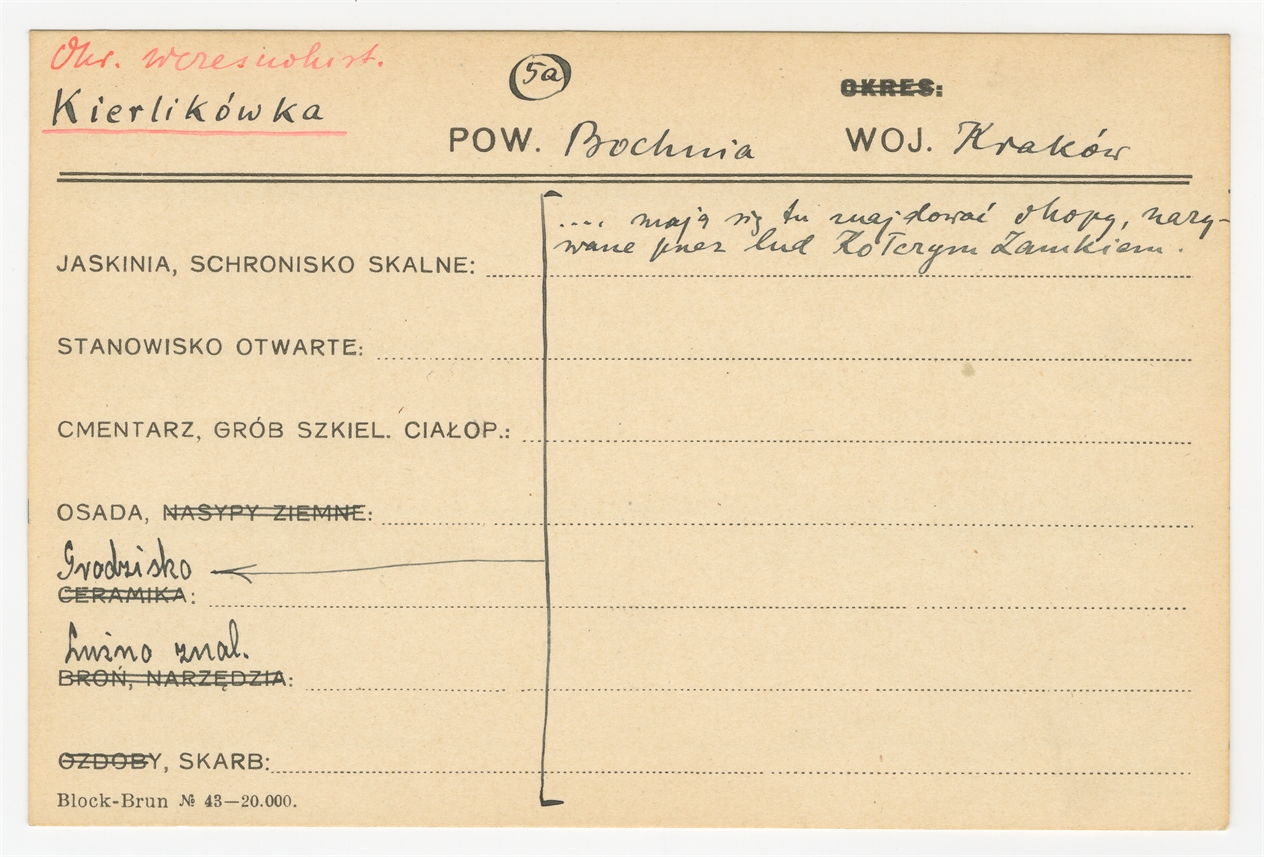 Okr. wczesnohist.
Kierlikówka
5a
OKRES:
POW. Bochnia
WOJ. Kraków
.... mają się tu znajdować okopy, nazy-
wane przez lud Kołczym Zamkiem.
JASKINIA, SCHRONISKO SKALNE:
STANOWISKO OTWARTE:
CMENTARZ, GRÓB SZKIEL. CIAŁOP.:
OSADA, NASYPY ZIEMNE:
Grodzisko
CERAMIKA:
Luźno znal.
BROŃ, NARZĘDZIA:
OZDOBY, SKARB:
Block-Brun № 43—20.000.